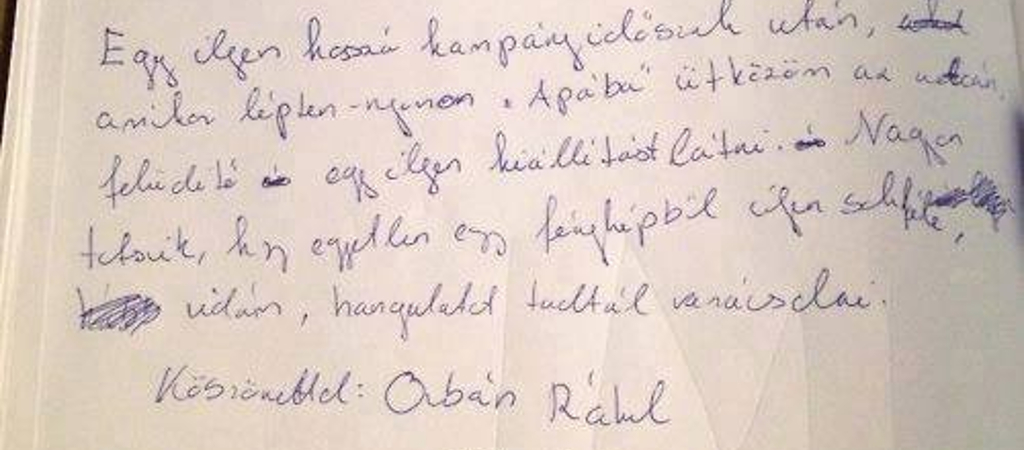 Egy ilyen hosszú kampányidőszak után,
amikor lépten-nyomon „Apába" ütközöm az utcán,
felüdítő egy ilyen kiállítást látni. Nagyon
tetszik, hogy egyetlen egy fényképből ilyen sokféle,
vidám, hangulatot tudtál varázsolni.
Köszönettel: Orbán Ráhel